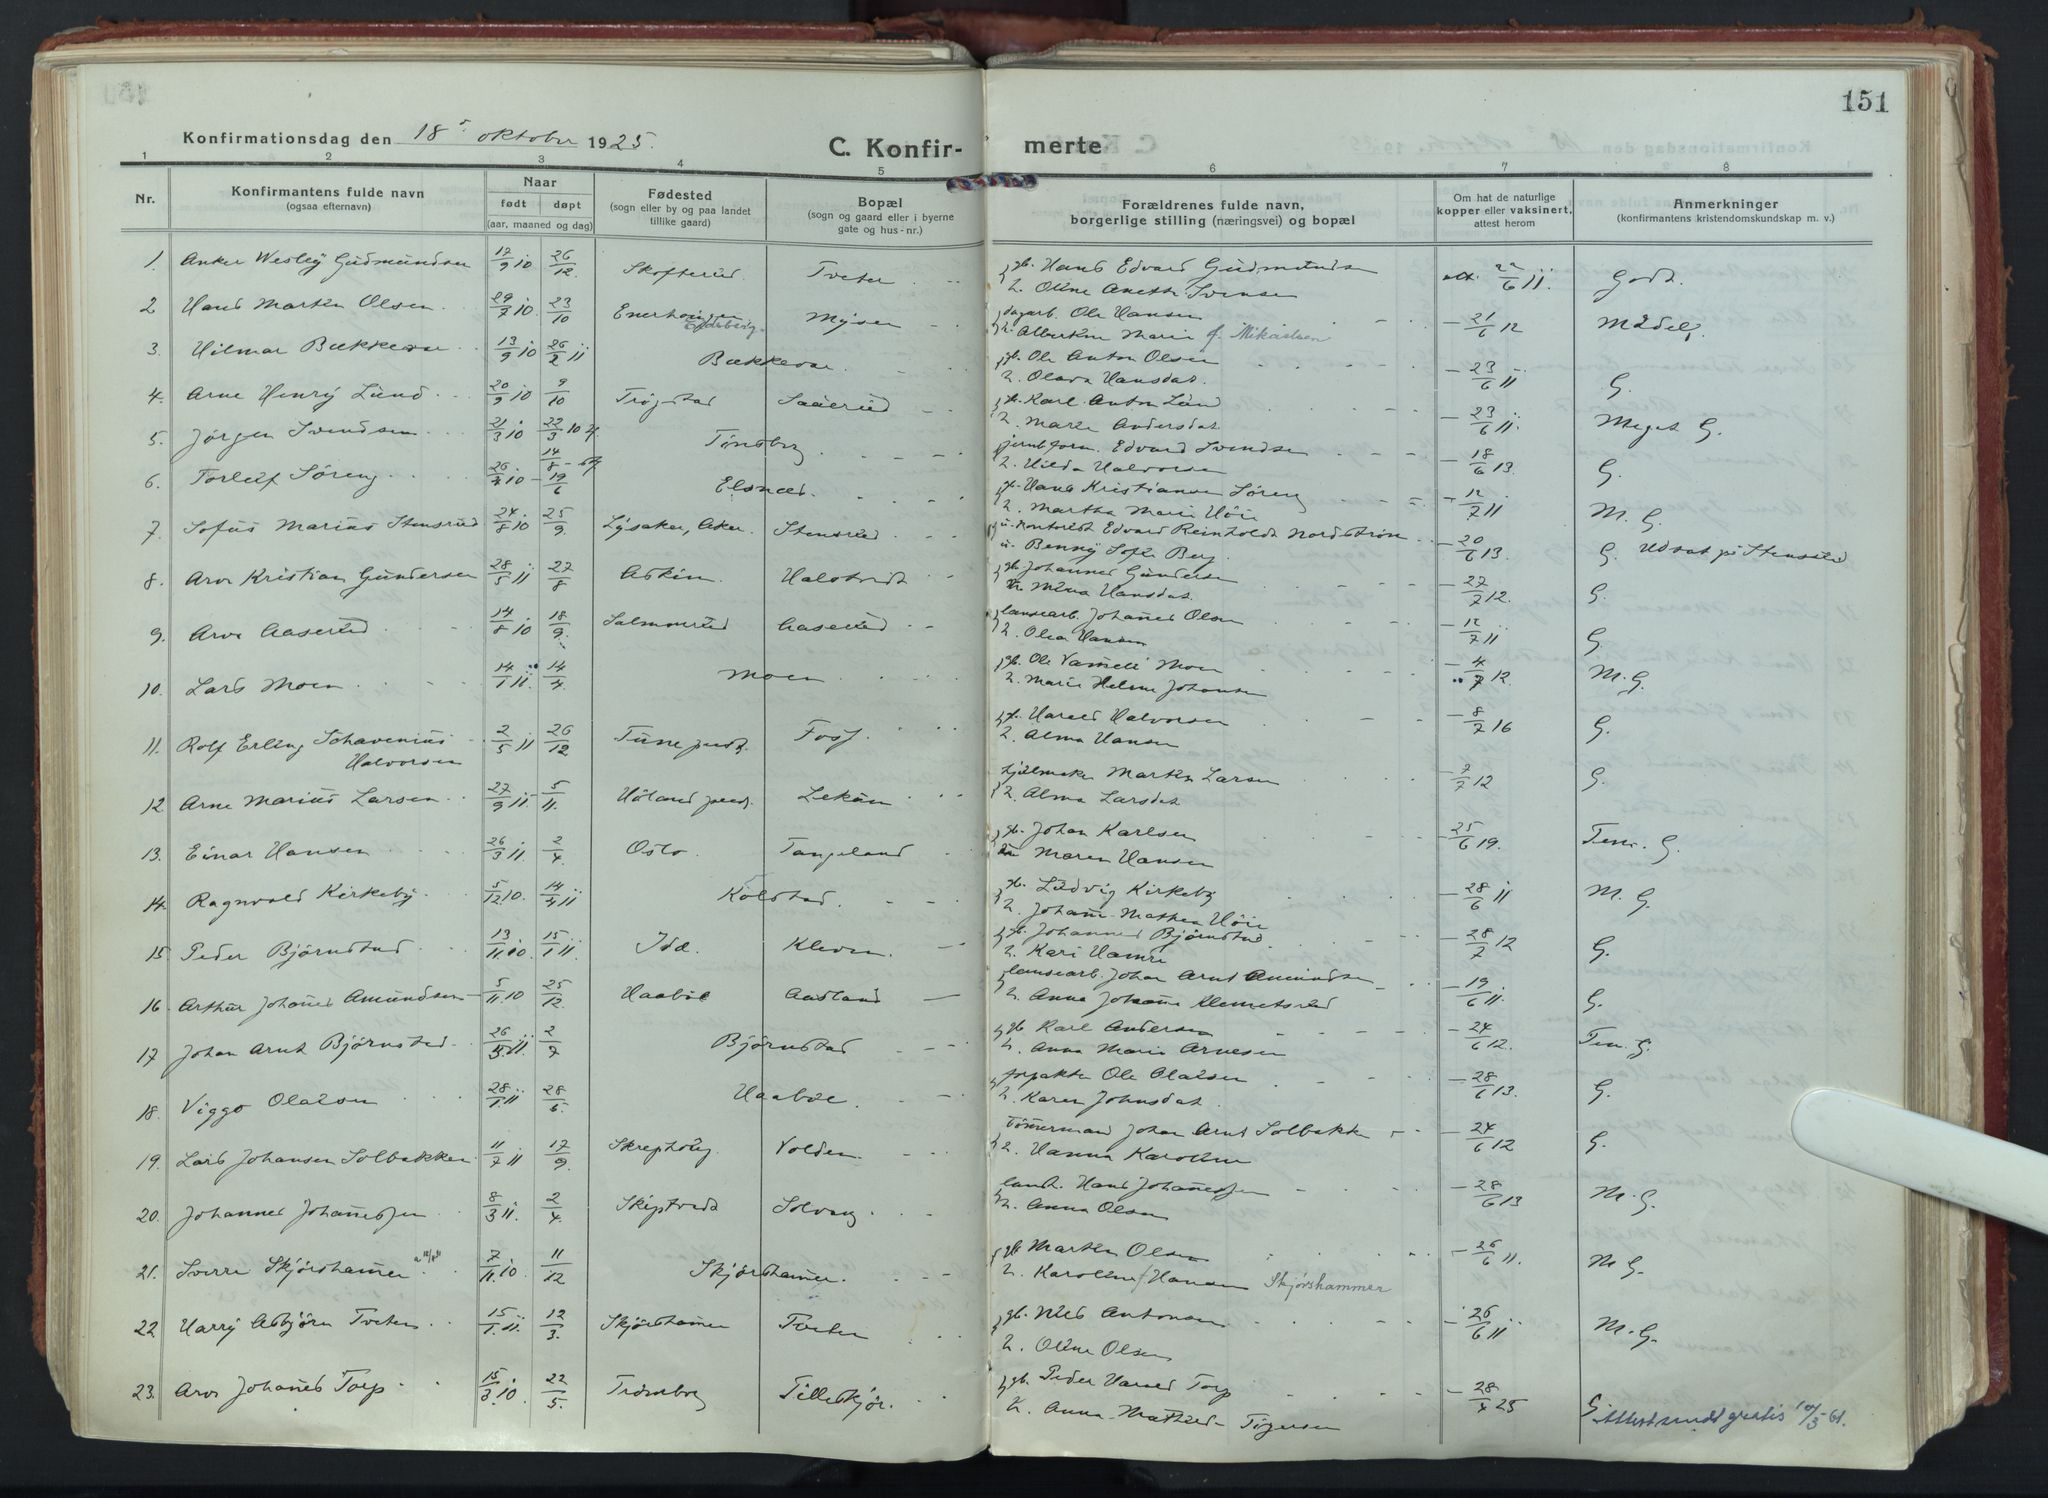 151
Konfirmationsdag den 18 oktober 1925.
C. Konfir- merte
1 2 3 4 5 6 7 8
Nr.
Konfirmantens fulde navn
(ogsaa efternavn)
Naar
født døpt
(aar, maaned og dag)
Fødested
(sogn eller by og paa landet
tillike gaard)
Bopæl
(sogn og gaard eller i byerne
gate og hus-nr.)
Forældrenes fulde navn,
borgerlige stilling (næringsvei) og bopæl
Om hat de naturlige
kopper eller vaksinert,
attest herom
Anmerkninger
(konfirmantens kristendomskundskap m. v.)
1. Anker Wesley Gudmundsen 17/9 10 26/12 Skofterud. Tveter gb. Hans Edvard Gudmunds att. 22/6 11. Godt.
2. Oline Anette Svensen
2 Hans Martin Olsen 29/7 10. 23/10 Enerhaugen Eidsberg. Mysen dagarb. Ole Hansen 21/6 12 Madel,
Albertine Marie f. Mikaelsen
3. Hilmar Bækkevar 13/9 10 26/2 11 Bækkevar. gb. Ole Anton Olsen 23/6 11 G.
2. Olava Hansdat.
4. Arne Henry Lund 20/9 10 9/10 Trøgstad Saaerud Karl Anton Lund 23/6 11. Meget G.
2. Marte Andersdat
5. Jørgen Svendsen 21/3 10 22/3 10 Tønsberg jernbform. Edvard Svendsen 18/6 13. G.
14/8
2. Hilda Halvorsen
6. Torleif Søreng 26/4 10 19/6 Elsnes. Hans Kristiansen Søreng 12/7 11 M. G.
2. Martha Marie Høie
7. Sofus Marius Stensrud 24/8 10 25/9. Lysaker, Aker. Stensrud kontorist Edvard Reinholdt Nordstrøm 20/6 13. G. Udsat på Stensrud
u. Benny Sofie Berg
8. Arve Kristian Gundersen 28/5 11 27/8 Askim. Halstvedt gb. Johannes Gundersen 27/7 12. G.
Mina Hansdat.
9. Arve Aaserud 14/8 10 18/9. Salmonrud Aaserud lausearb. Johannes Olsen 12/7 11 G.
2. Olea Hansen
10. Lars Moen 14/1 11. 14/4. Moen gb. Ole Moen 4/7 12. M. G.
2. Marie Helene Johansen
11. Rolf Erling Schavenius Halvorsen 2/5 11 26/12 Tune Foss. Harald Halvorsen 8/7 16 G.
2. Alma Hansen
12. Arne Marius Larsen 27/9 11. 5/11. Høland Lekum hjulmaker Martin Larsen 7/7 12 G.
2. Alma Larsdat
13. Einar Hansen 26/3 11. 2/4. Oslo Tangeland gb. Johan Karlsen 25/6 19. Tem. G.
Maren Hansen
14. Ragnvald Kirkeby. 5/12 10. 14/4 11 Kolstad. gb. Ludvig Kirkeby 28/6 11 M. G.
2. Johanne Mathea Høie
15. Peder Bjørnstad 13/11 10. 15/1 11. Idd. Kleven. gb. Johannes Bjørnstad. 28/7 12 G.
2. Kari Hamre
16. Arthur Johannes Amundsen 5/11 10 25/12 Haabøl Aasland lausearb. Johan Arnt Amundsen 19/6 11. G.
2. Anna Johanne Klemetsrud
17 Johan Arnt Bjørnstad. 26/3 11. 2/7 Bjørnstad gb. Karl Andersen 24/6 12. Tem. G.
2. Anna Marie Arnesen
18. Viggo Olaisen 28/1 11 28/5. Haabøl. forpakter Ole Olaisen 28/6 13. G.
2. Karen Johnsdat.
19. Lars Johansen Solbakken 11/7 11 17/9. Skrephoug Volden. Tømmermand Johan Arnt Solbakken 24/6 12 G.
2. Hanna Karoline
20. Johannes Johannessen 8/3 11. 2/4. Skiptvedt Solvang Hans Johannessen 28/6 13 M. G.
2. Anna Olsen
21. Sverre Skjørshamer 7/11 10. 11/12 Skjørshamer. gb. Martin Olsen 26/6 11. M G.
2. Karoline Hansen Skjørshammer
22 Harry Asbjørn Tveter 15/1 11. 12/3. Skjørshamer Tveter gb. Nils Antonsen 26/6 11 M. G.
2. Oline Olsen
23. Arve Johannes Torp 15/3 10. 22/5. Trømborg Tilleskjør. gb. Peder Torp 28/4 25 G. Attest sendt gratis 10/3-61.
Anna Mathilde Torgersen